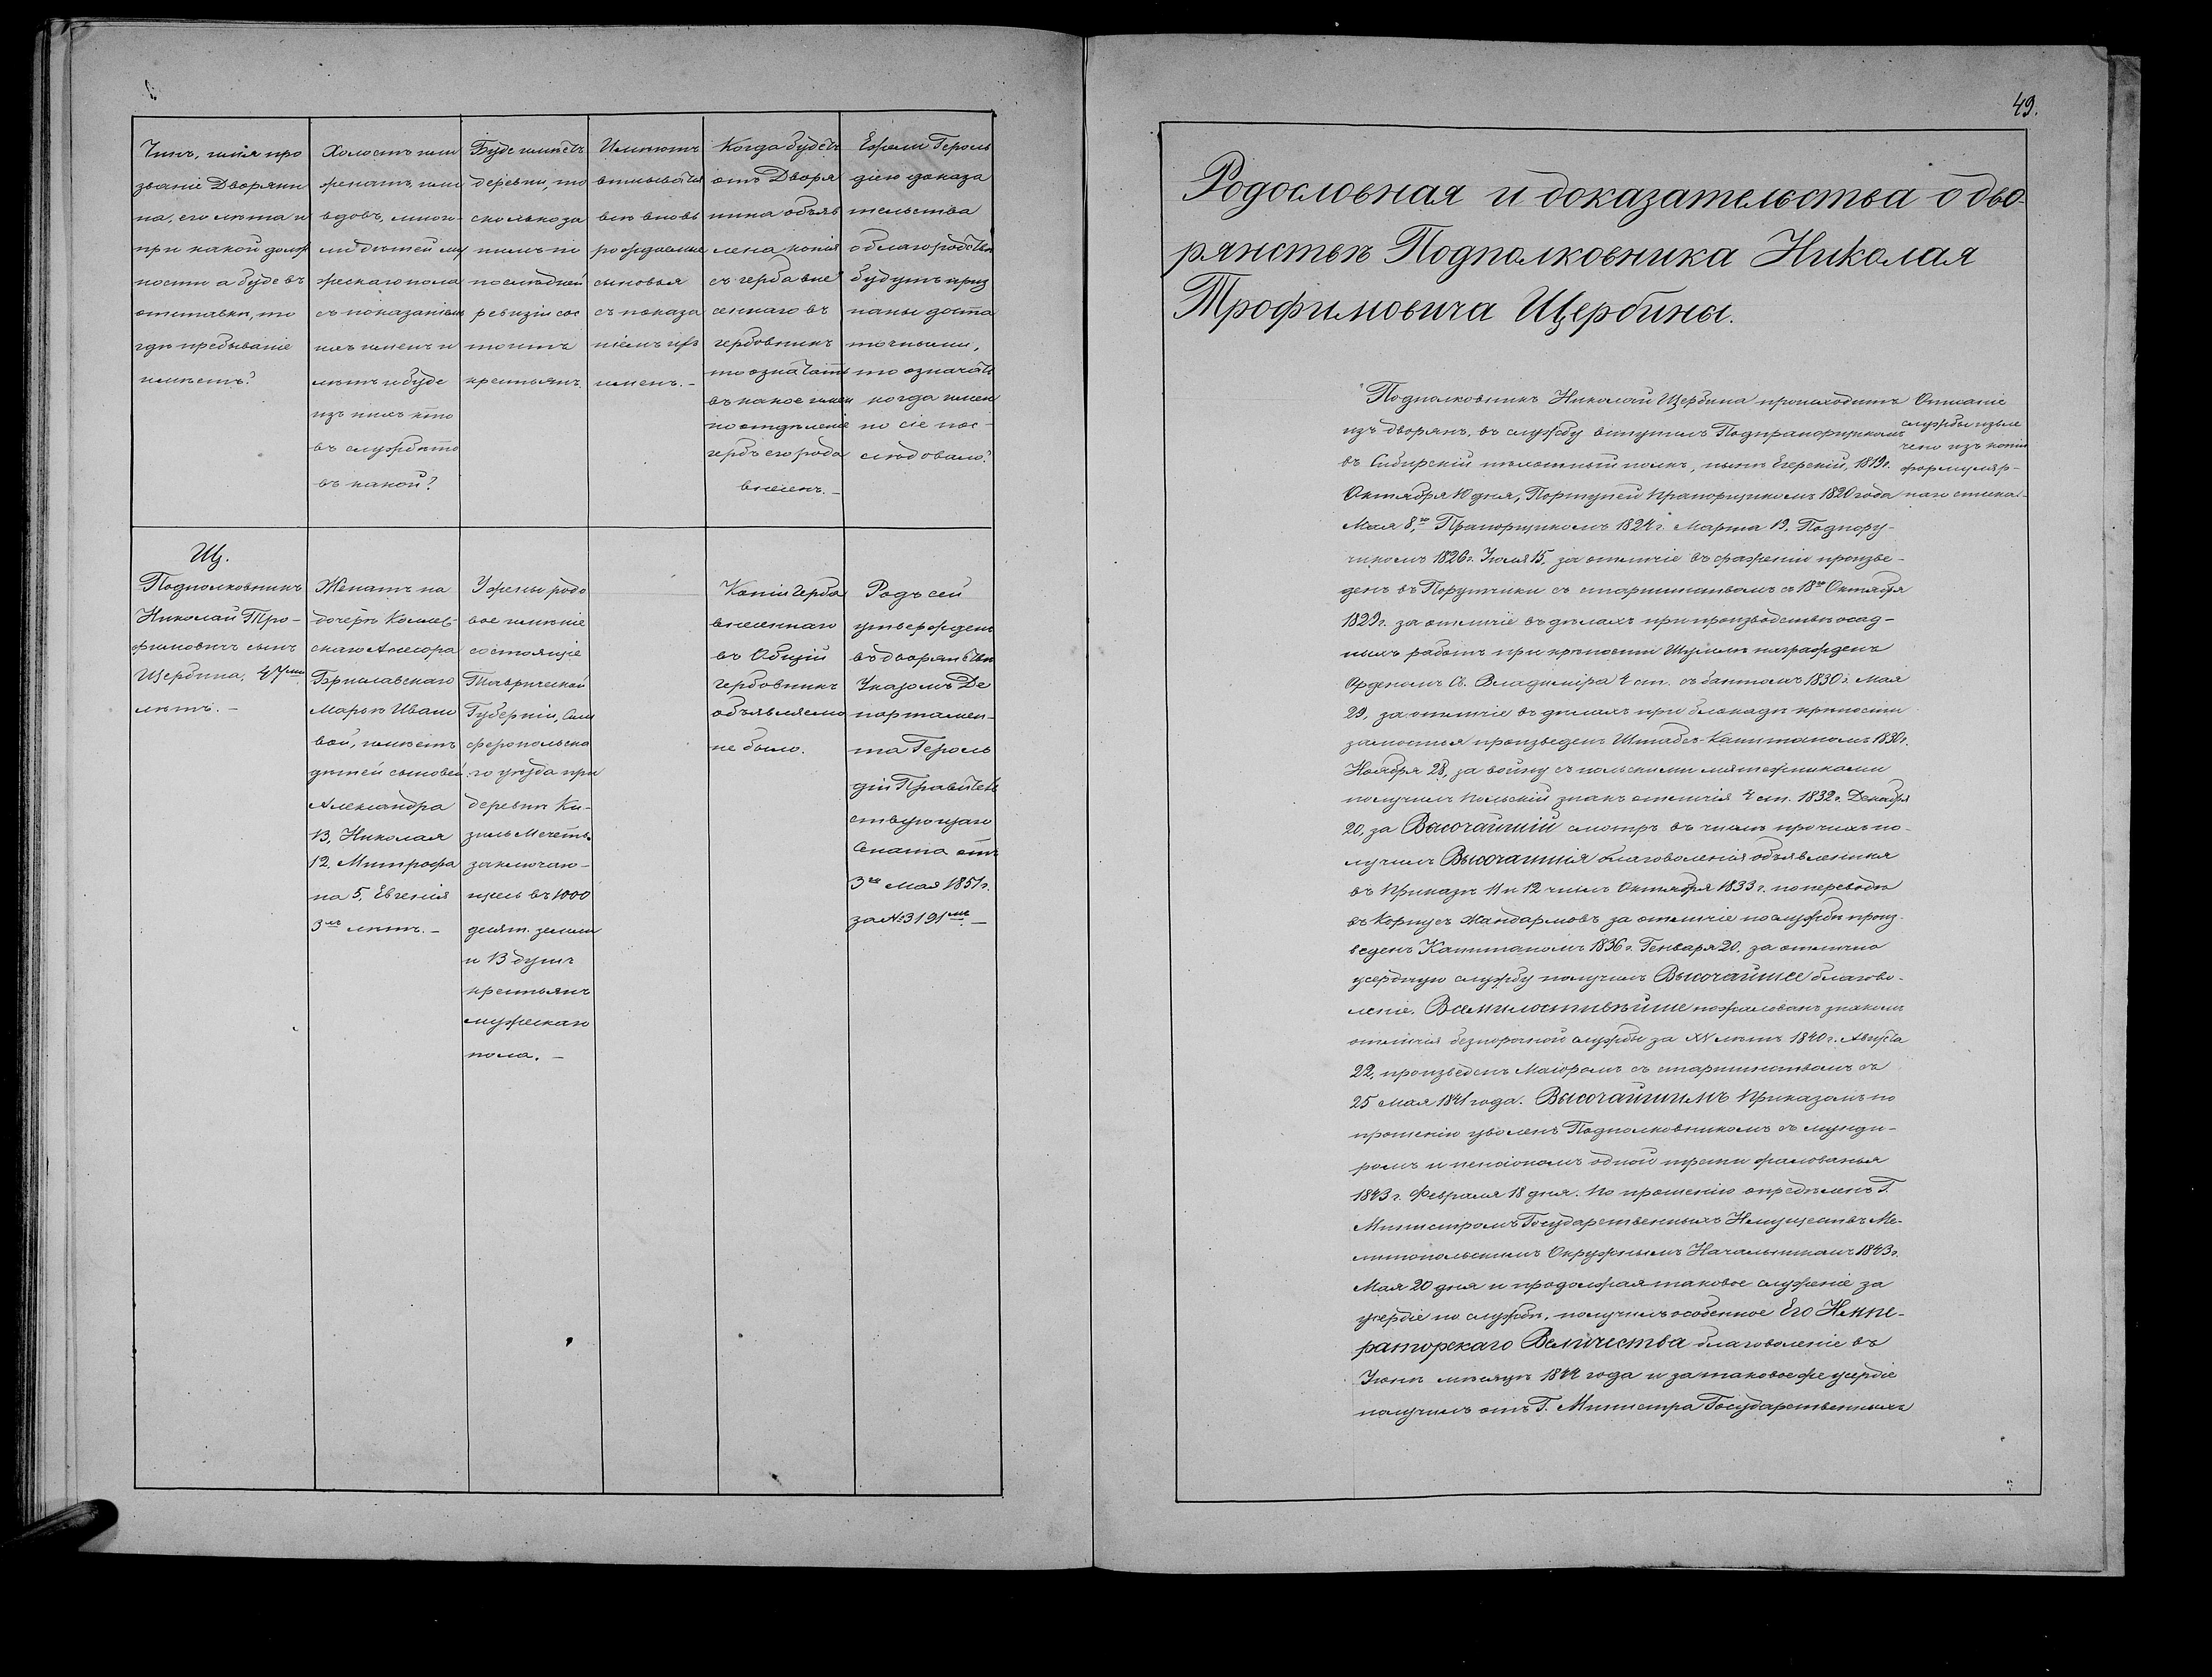 Чинъ, имя про
званіе Дворяни
на, его лѣта и
при какой долж
ности а буде въ
отставки, то
гдѣ пребываніе
имѣетъ?
Холостъ или
женатъ, или
вдовъ, много-
ли дѣтей му
жескаго пола
съ показаніемъ
ихъ именъ и
лѣтъ и буде
изъ нихъ кто
въ службѣ то
въ какой?
Буде имѣетъ
деревни, то
сколько за
нимъ по
послѣдней
ревизіи сос
тоитъ
крестьянъ.
Имѣютъ
вписыватся
всѣ вновь
рождаемые
сыновья
съ показа
ніемъ ихъ
именъ.-
Когда будетъ
отъ Дворя
нина объяв
лена копія
съ герба вне
сеннаго въ
гербовникъ
то означать
въ какое имен
но отдѣленіе
гербъ его рода
внесенъ.-
Ежели Героль
діею доказа
тельства
о благородствѣ
будутъ приз
наны доста
точными,
то означать
когда имен
но сіе пос-
лѣдовало?
Щ.
Подполковникъ
Николай Тро-
фимовичъ сынъ
Щербина, 47ми
лѣтъ.-
Женатъ на
дочерѣ Коллеж
скаго Асесора
Бриславскаго
Марьѣ Ивано
вой, имѣетъ
дѣтей сыновей
Александра
13, Николая
12, Митрофа
на 5, Евгенія
3хъ лѣтъ.-
У жены родо
вое имѣніе
состоящіе
Таврической
Губерніи, Сим
феропольска
го уѣзда при
деревнѣ Ки-
зилъ Мечеть
заключаю-
щеесь въ 1000
десят. земли
и 13 душъ
крестьянъ
мужескаго
пола.-
Копіи герба
внесеннаго
въ Общій
гербовникъ
объявляемо
не было.
Родъ сей
утвержденъ
въ дворянствѣ
Указомъ Де
партамен-
та Героль
діи Правитель
ствующаго
Сената отъ
3го Мая 1851 г.
за № 3191мъ.-
49.
Родословная и доказательства о дво-
рянствѣ Подполковника Николая
Трофимовича Щербины.
Подполковникъ Николай Щербина происходитъ
изъ дворянъ, въ службу вступилъ Подпрапорщикомъ
въ Сибирскій пѣхотный полкъ, нынѣ Егерскій, 1819 г.
Октября 10 дня, Портупей Прапорщикомъ 1820 года
Мая 8го, Прапорщикомъ 1824 г. Марта 19, Подпору-
чикомъ 1826 г. Іюля 15, за отличіе въ сраженіи произве-
денъ въ Поручики съ старшинствомъ съ 18го Октября
1829 г. за отличіе въ дѣлахъ при производствѣ осад-
ныхъ работъ при крѣпости Шумлѣ награжденъ
Орденомъ Св. Владиміра 4 ст. съ бантомъ 1830 г. Мая
29, за отличіе въ дѣлахъ при блокадѣ крѣпости
замостья произведенъ Штабсъ-Капитаномъ 1830 г.
Ноября 28, за войну съ польскими мятежниками
получилъ Польскій знакъ отличія 4 ст. 1832 г. Декабря
20, за Высочайшій смотръ въ числѣ прочихъ по-
лучилъ Высочайшія благоволенія объявленныя
въ Приказѣ 11 и 12 числъ Октября 1833 г. по переводѣ
въ Корпусъ Жандармовъ за отличіе по службѣ произ-
веденъ Капитаномъ 1836 г. Генваря 20, за отлично
усердную службу получилъ Высочайшее благово-
леніе. Всемилостивѣйше пожалованъ знакомъ
отличія безпорочной службы за XV лѣтъ 1840 г. Августа
22, произведенъ Маіоромъ съ старшинствомъ съ
25 Мая 1841 года. Высочайшимъ Приказомъ по
прошенію уволенъ Подполковникомъ съ мунди-
ромъ и пенсіономъ одной трети жалованья
1843 г. Февраля 18 дня. По прошенію опредѣленъ Г.
Министромъ Государственныхъ Имуществъ Ме-
литопольскимъ Окружнымъ Начальникомъ 1843 г.
Мая 20 дня и продолжая таковое служеніе за
усердіе по службѣ, получилъ особенное Его Импе-
раторскаго Величества благоволеніе въ
Іюнѣ мѣсяцѣ 1844 года и за таковое же усердіе
получилъ отъ Г. Министра Государственныхъ
Описаніе
службы извле
чено изъ копіи
формуляр-
наго списка.-